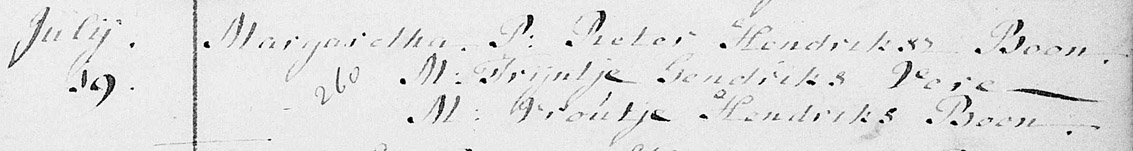 Julij. Margaretha. P: Pieter Hendriks Boon.
19. 260 M: Trijntje Gendriks Vere
M: Vroutje Hendriks Boon.